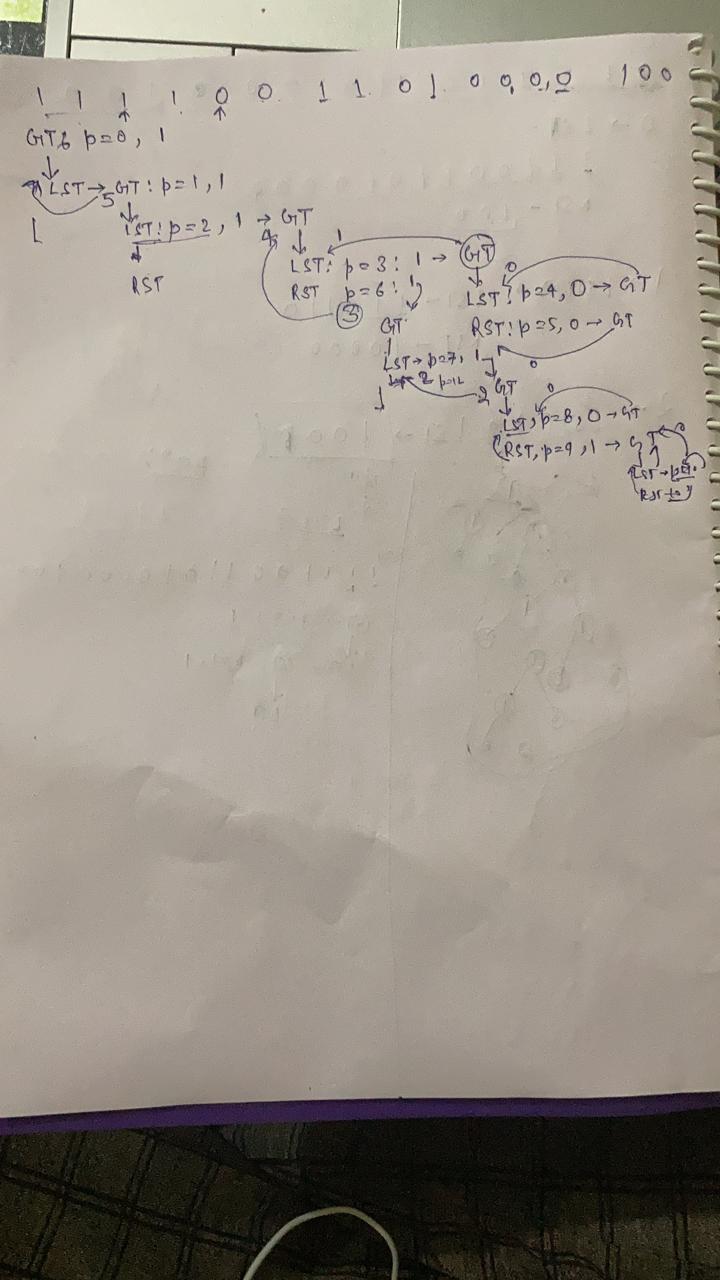 1 1 1 1 0 0 1 1 0 1 0 0 0 0 1 0 0
GT p=0, 1
LST → GT: p=1, 1
5
LST: p=2, 1 → GT
4
RST
LST: p=3: 1 → GT
1
RST p=6: 1
3
LST: p=4, 0 → GT
0
RST: p=5, 0 → GT
0
GT
LST → p=7, 1
2 p=12
GT
2
LST, p=8, 0 → GT
0
RST, p=9, 1 → GT
0
LST →
RST